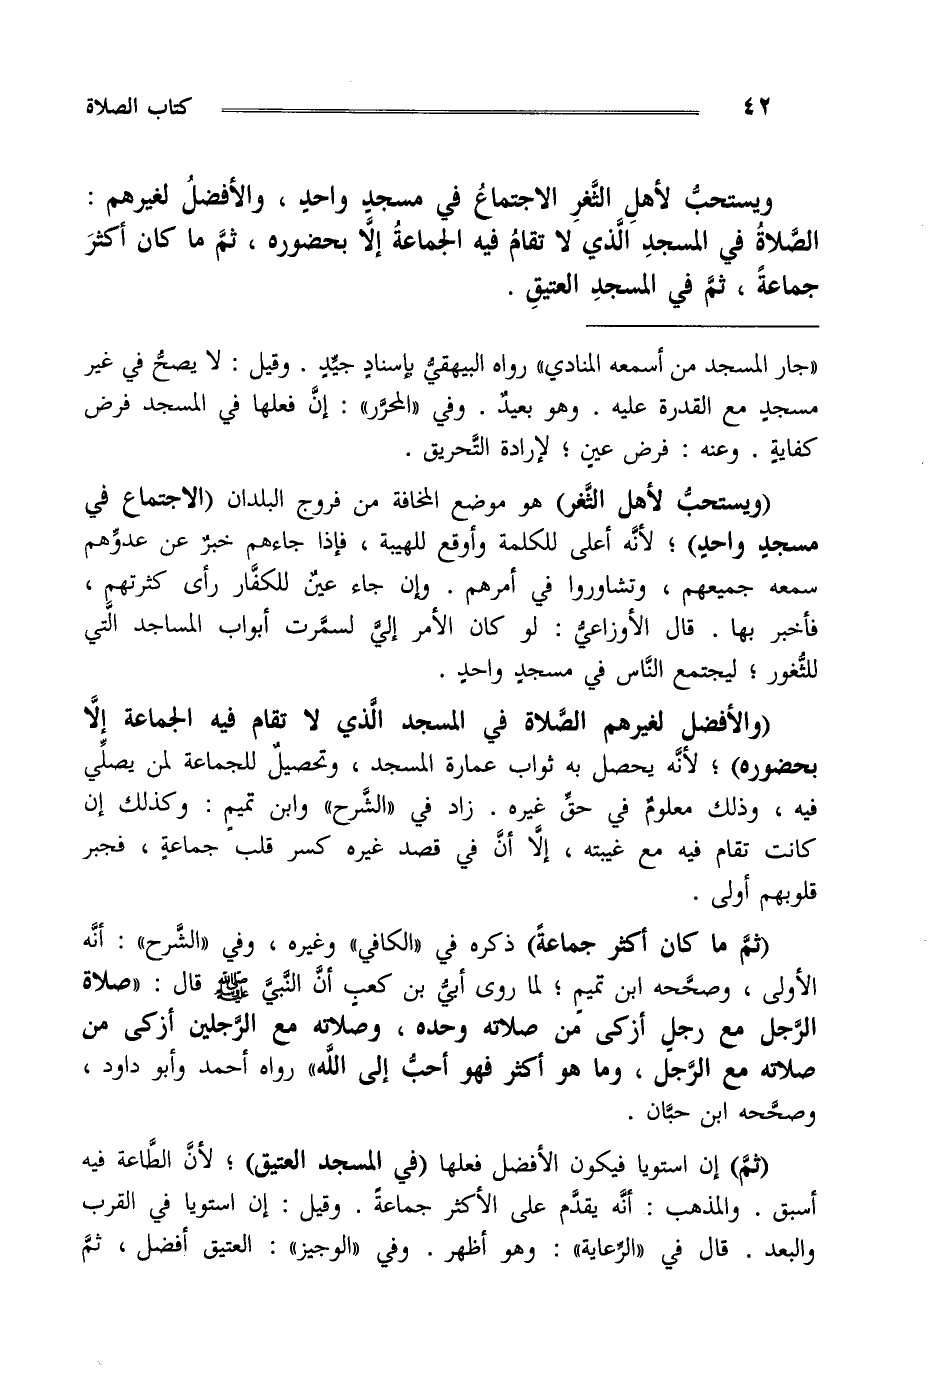 ٤٢ كتاب الصلاة
ويستحبُّ لأهلِ الثَّغرِ الاجتماعُ في مسجدٍ واحدٍ ، والأفضلُ لغيرهم :
الصَّلاةُ في المسجدِ الَّذي لا تقامُ فيه الجماعةُ إلَّا بحضوره ، ثمَّ ما كان أكثرَ
جماعةً ، ثمَّ في المسجدِ العتيقِ .
«جار المسجد من أسمعه المنادي» رواه البيهقيُّ بإسنادٍ جيِّدٍ . وقيل : لا يصحُّ في غير
مسجدٍ مع القدرة عليه . وهو بعيدٌ . وفي «المحرَّر» : إنَّ فعلها في المسجد فرض
كفايةٍ . وعنه : فرض عينٍ ؛ لإرادة التَّحريق .
(ويستحبُّ لأهل الثَّغر) هو موضع المخافة من فروج البلدان (الاجتماع في
مسجدٍ واحدٍ) ؛ لأنَّه أعلى للكلمة وأوقع للهيبة ، فإذا جاءهم خبرٌ عن عدوِّهم
سمعه جميعهم ، وتشاوروا في أمرهم . وإن جاء عينٌ للكفَّار رأى كثرتهم ،
فأخبر بها . قال الأوزاعيُّ : لو كان الأمر إليَّ لسمَّرت أبواب المساجد الَّتي
للثُّغور ؛ ليجتمع النَّاس في مسجدٍ واحدٍ .
(والأفضل لغيرهم الصَّلاة في المسجد الَّذي لا تقام فيه الجماعة إلَّا
بحضوره) ؛ لأنَّه يحصل به ثواب عمارة المسجد ، وتحصيلٌ للجماعة لمن يصلِّي
فيه ، وذلك معلومٌ في حقِّ غيره . زاد في «الشَّرح» وابن تميمٍ : وكذلك إن
كانت تقام فيه مع غيبته ، إلَّا أنَّ في قصد غيره كسر قلب جماعةٍ ، فجبر
قلوبهم أولى .
(ثمَّ ما كان أكثر جماعةً) ذكره في «الكافي» وغيره ، وفي «الشَّرح» : أنَّه
الأولى ، وصحَّحه ابن تميمٍ ؛ لما روى أبيُّ بن كعبٍ أنَّ النَّبيَّ ﷺ قال : «صلاة
الرَّجل مع رجلٍ أزكى من صلاته وحده ، وصلاته مع الرَّجلين أزكى من
صلاته مع الرَّجل ، وما هو أكثر فهو أحبُّ إلى اللَّه» رواه أحمد وأبو داود ،
وصحَّحه ابن حبَّان .
(ثمَّ) إن استويا فيكون الأفضل فعلها (في المسجد العتيق) ؛ لأنَّ الطَّاعة فيه
أسبق . والمذهب : أنَّه يقدَّم على الأكثر جماعةً . وقيل : إن استويا في القرب
والبعد . قال في «الرِّعاية» : وهو أظهر . وفي «الوجيز» : العتيق أفضل ، ثمَّ